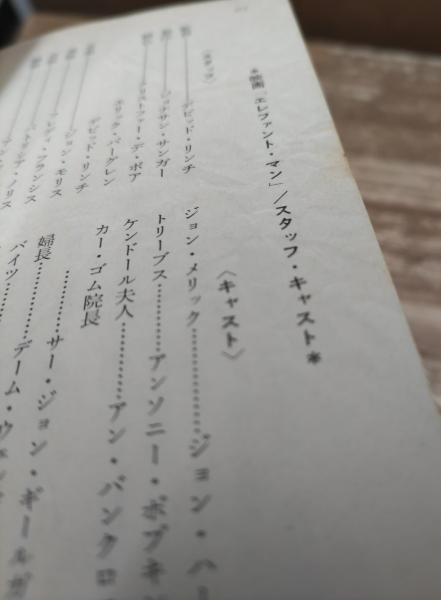 *映画「エレファント・マン」/スタッフ・キャスト*
〈スタッフ〉
デビッド・リンチ
ジョナサン・サンガー
クリストファー・デ・ボア
エリック・バーグレン
デビッド・リンチ
ジョン・モリス
フレディ・フランシス
パトリシア・ノリス
〈キャスト〉
ジョン・メリック……………ジョン・ハー
トリーブス……………アンソニー・ホプキン
ケンドール夫人……………アン・バンクロ
カー・ゴム院長
……………サー・ジョン・ギールガ
婦長……………デーム・ウェン
バイツ……………